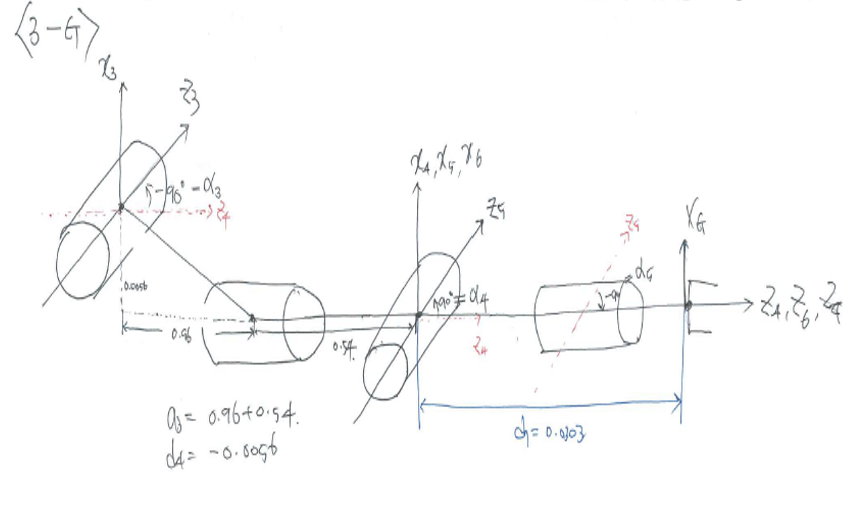 <3-G>
x3
z3
-90° = α3
z4
0.0056
0.96
0.54
x4, x5, x6
z5
90° = α4
z4
z5
α5
xG
z4, z6, zG
a3 = 0.96+0.54.
d4 = -0.0056
dG = 0.0303